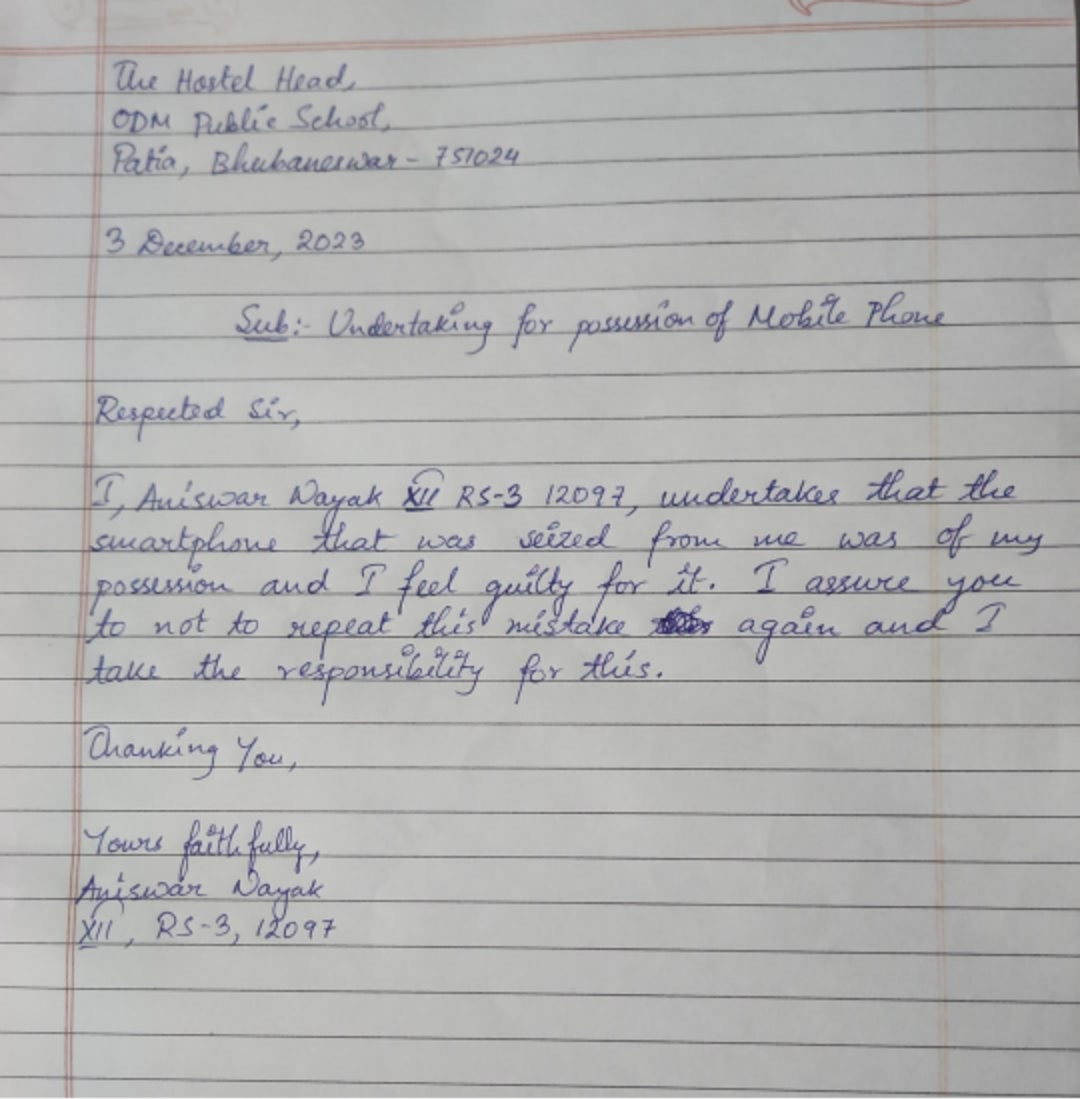 The Hostel Head,
ODM Public School,
Patia, Bhubaneswar - 751024
3 December, 2023
Sub:- Undertaking for possession of Mobile Phone
Respected Sir,
I, Aniswar Nayak XII RS-3 12097, undertakes that the
smartphone that was seized from me was of my
possession and I feel guilty for it. I assure you
to not to repeat this mistake again and I
take the responsibility for this.
Thanking You,
Yours faithfully,
Aniswar Nayak
XII, RS-3, 12097